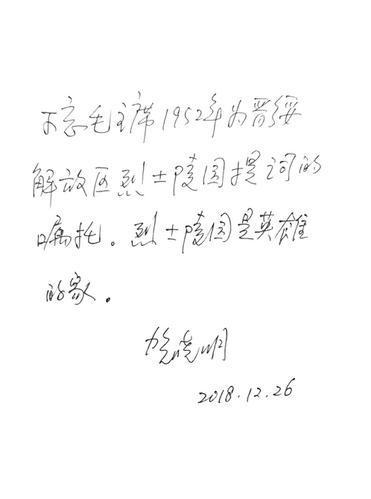 不忘毛主席1952年为晋绥
解放区烈士陵园提词的
嘱托。烈士陵园是英雄
的家。
晓明
2018.12.26